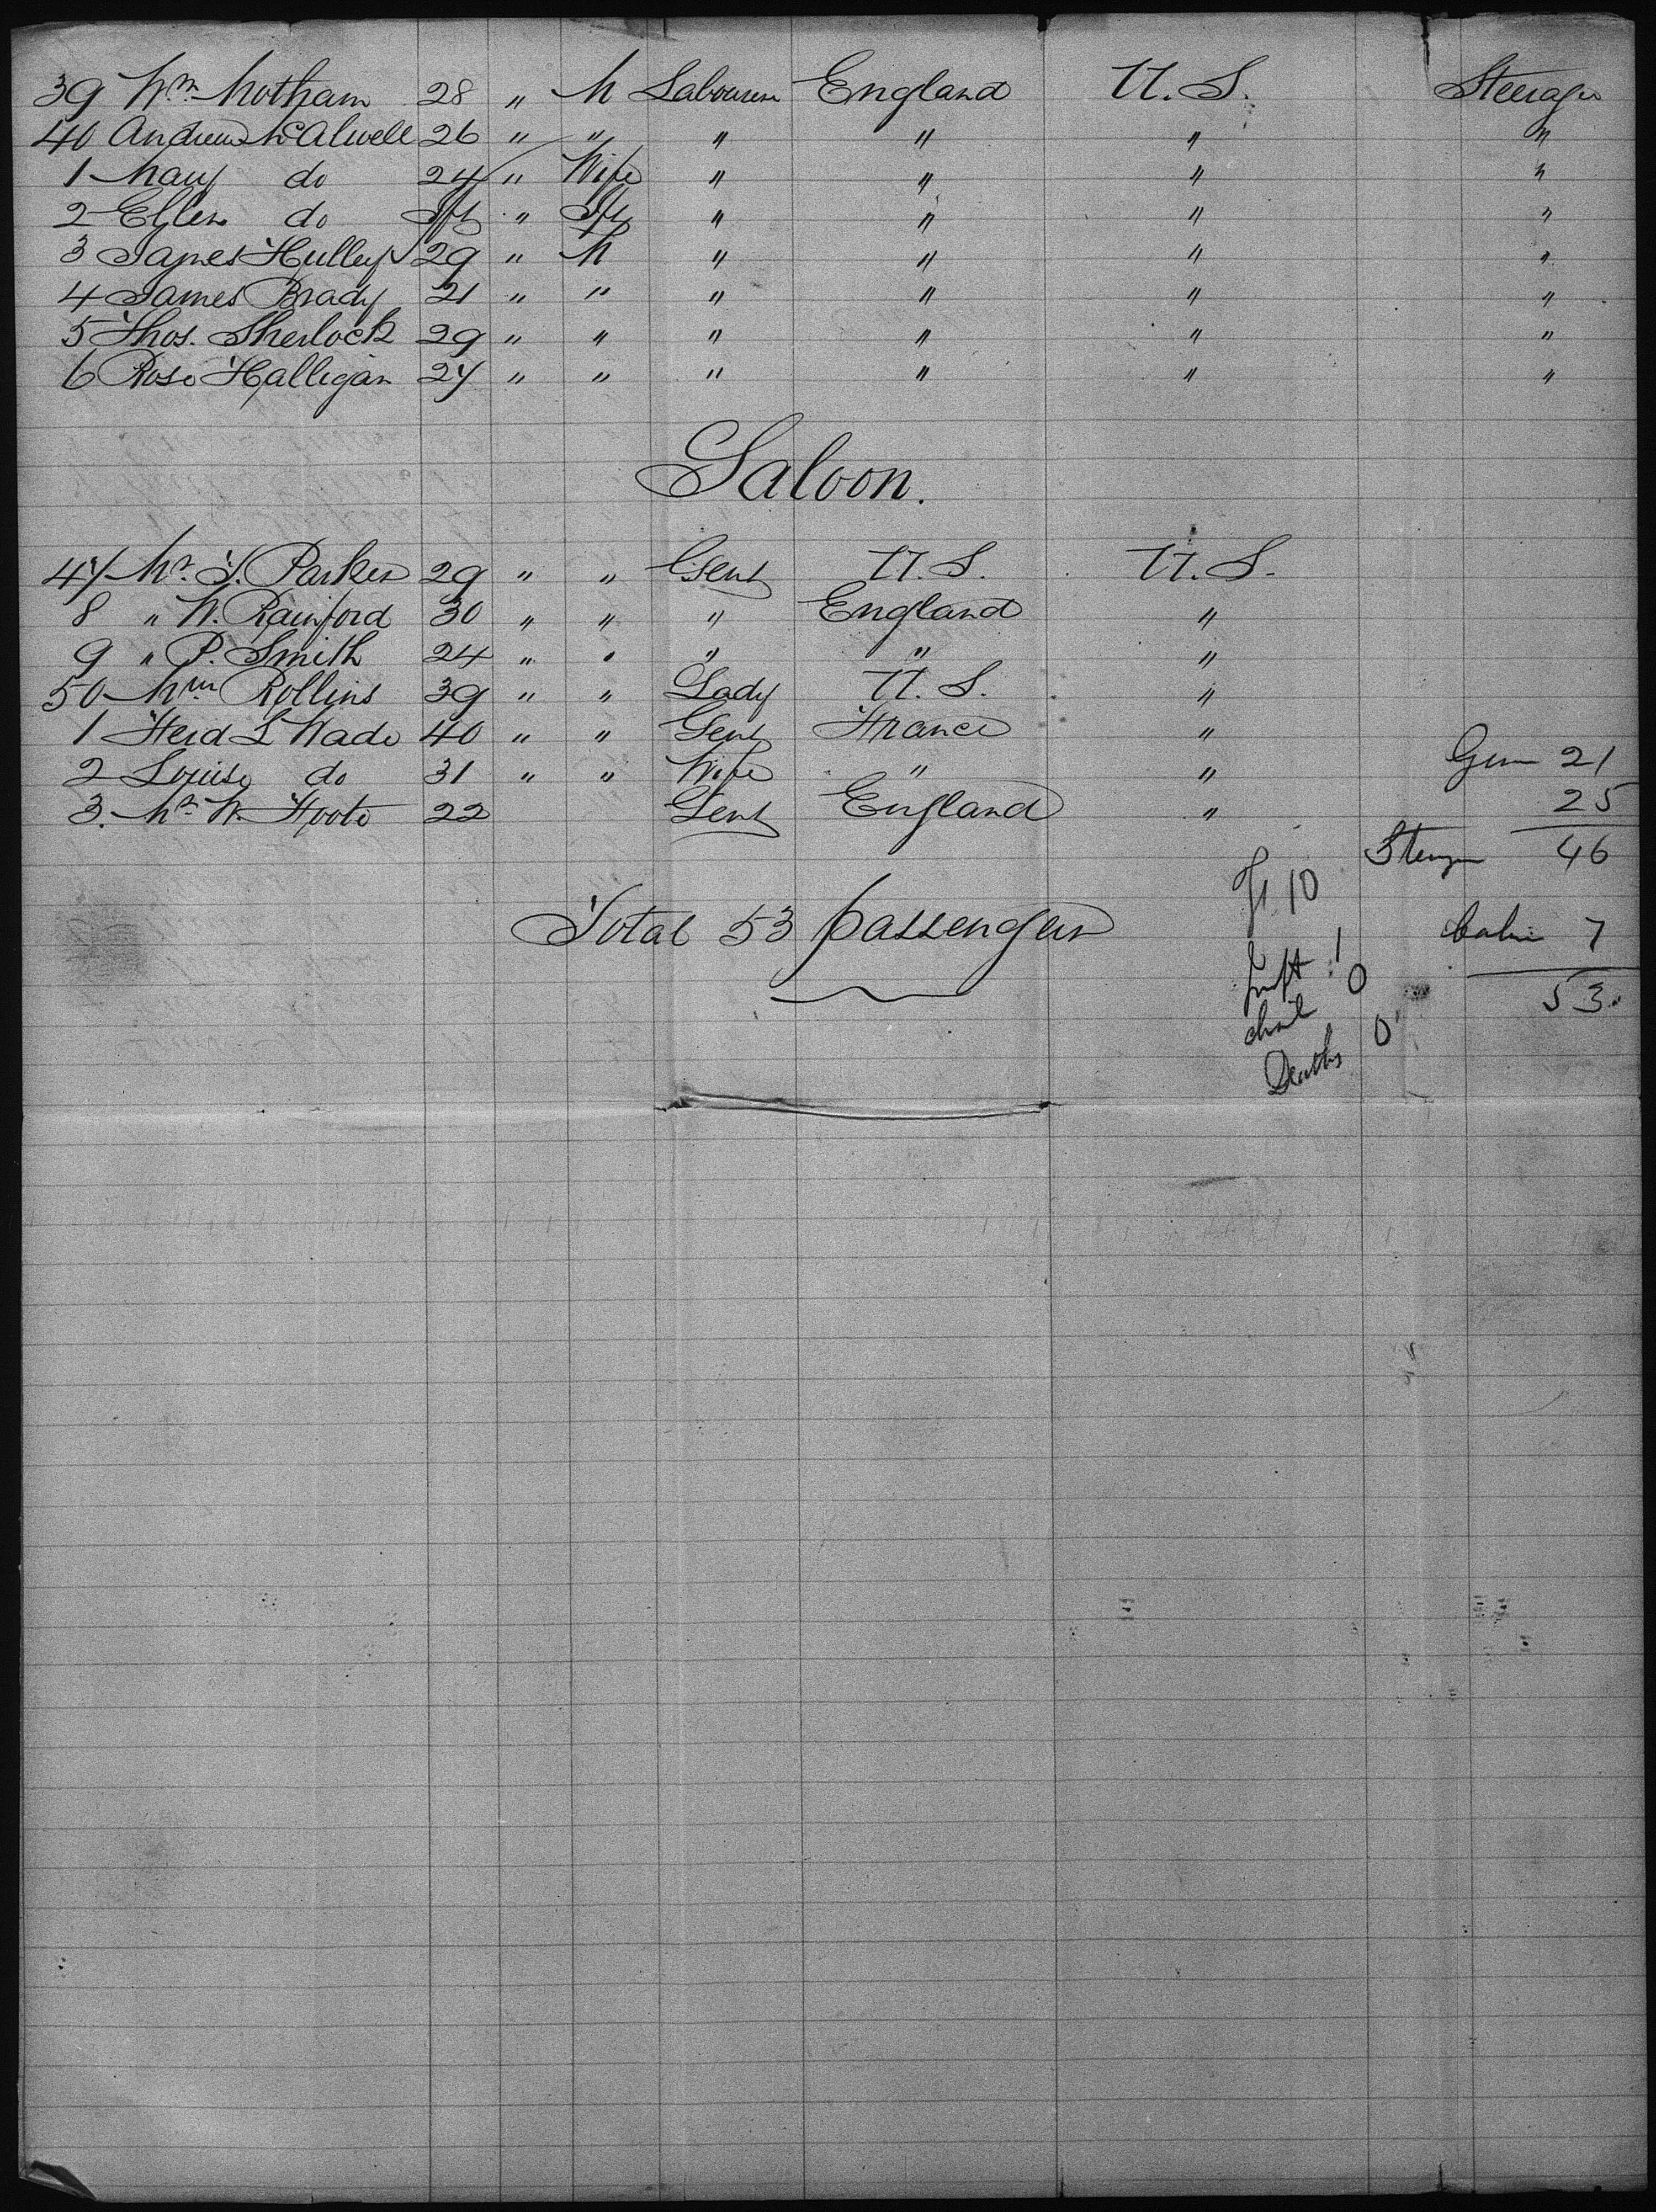 39 Wm. Motham 28 " M Labourer England U. S. Steerage
40 Andrew McAlwell 26 " " " " " "
1 Mary do 24 " Wife " " " "
2 Ellen do Inft " Inft " " " "
3 James Hulley 29 " M " " " "
4 James Brady 21 " " " " " "
5 Thos. Sherlock 29 " " " " " "
6 Rose Halligan 27 " " " " " "
Saloon.
47 Mr. J. Parker 29 " " Gent U. S. U. S.
8 " W. Rainford 30 " " " England "
9 " P. Smith 24 " " " " "
50 Mrs Rollins 39 " " Lady U. S. "
1 Ferd L Wade 40 " " Gent France "
2 Louise do 31 " " Wife " "
3. Mr. W. Foote 22 Gent England "
21
25
46
10
Total 53 passengers
Cabin 7
Inft 1
53
chil 0
Deaths 0